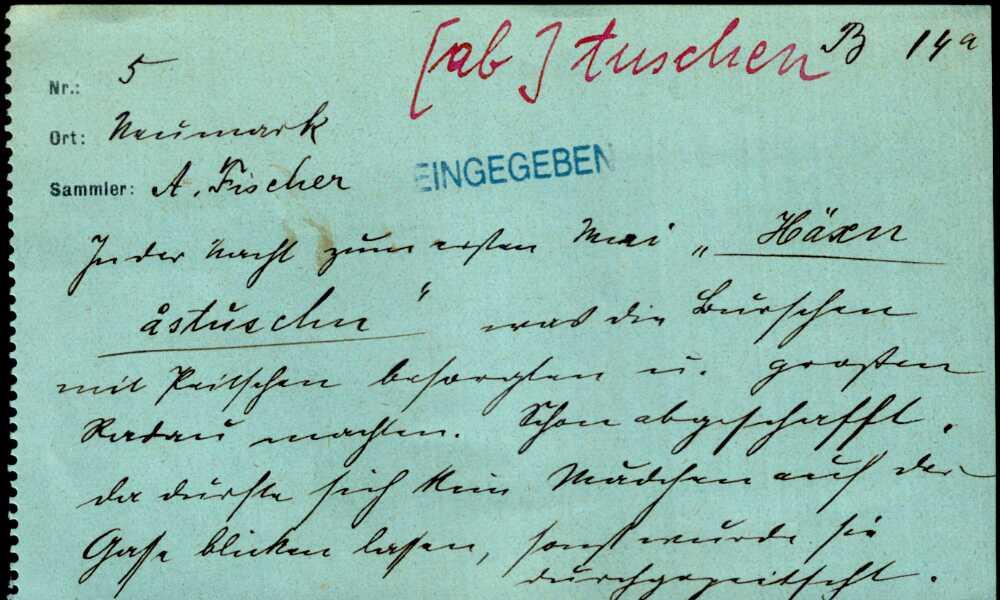 [ab]tuschen B 14a
Nr.: 5
Ort: Neumark
Sammler: A. Fischer
EINGEGEBEN
In der Nacht zum ersten Mai „Häxn
åstuschn“ was die Burschen
mit Peitschen besorgten u. großen
Radau machten. Schon abgeschafft.
da durfte sich kein Mädchen auf der
Gasse blicken lassen, sonst wurde sie
durchgepeitscht.